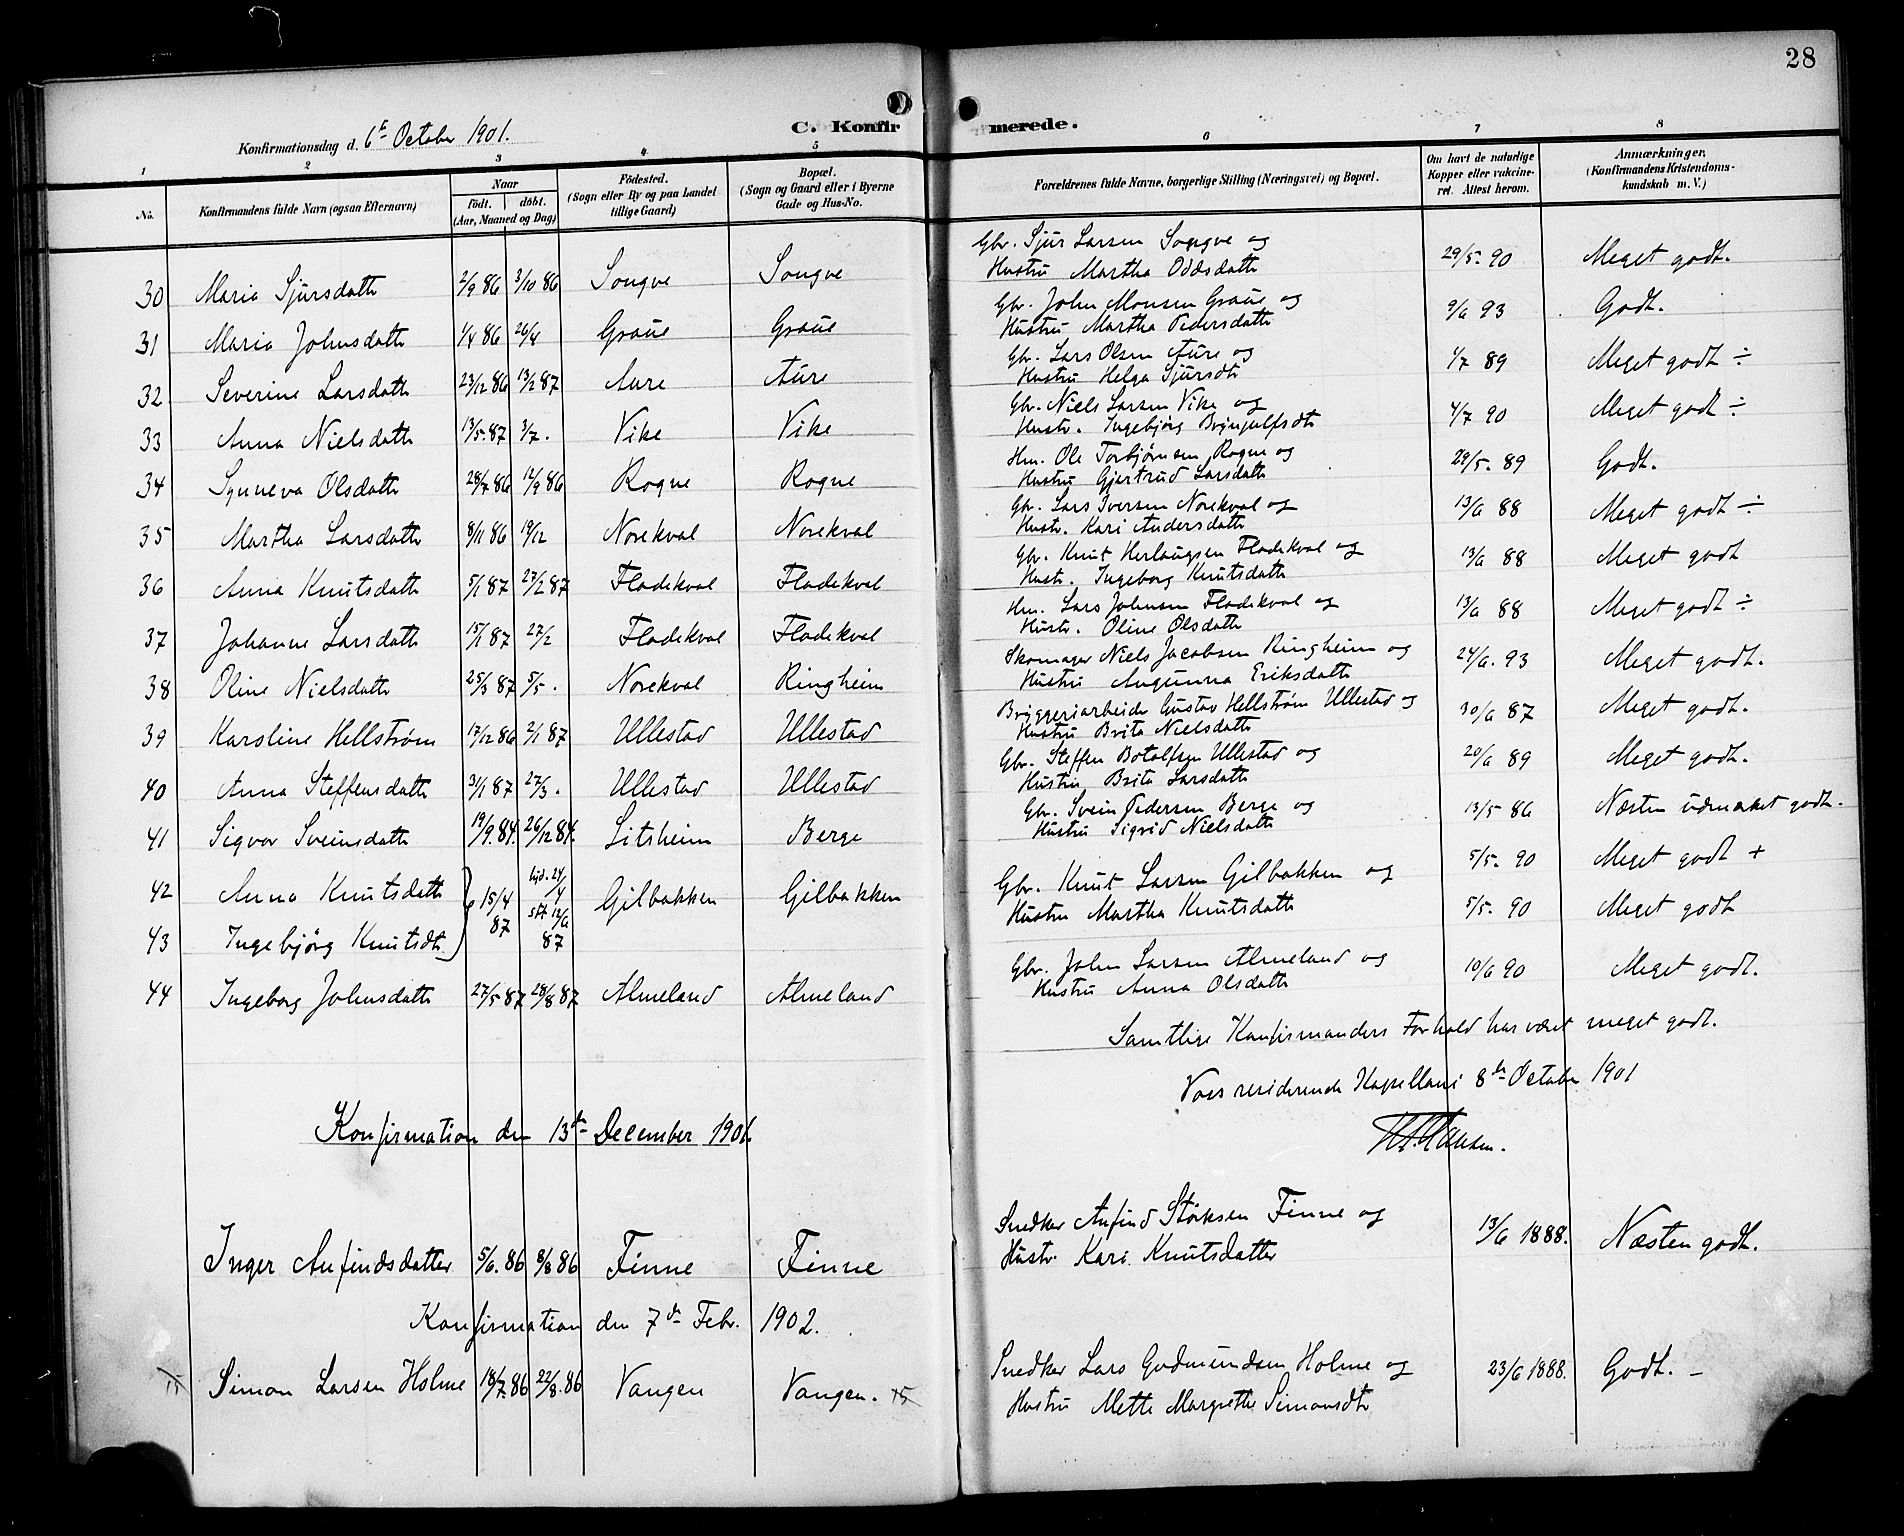 28
Konfirmationsdag d. 6te October 1901.
C. Konfirmerede.
1 2 3 4 5 6 7 8
No. Konfirmandens fulde Navn (ogsaa Efternavn) Naar født. døbt. (Aar, Maaned og Dag) Fødested. (Sogn eller By og paa Landet tillige Gaard) Bopæl. (Sogn og Gaard eller i Byerne Gade og Hus-No. Forældrenes fulde Navne, borgerlige Stilling (Næringsvei) og Bopæl. Om havt de naturlige Kopper eller vakcineret. Attest herom. Anmærkninger. (Konfirmandens Kristendomskundskab m. V.)
30 Maria Sjursdattr 2/9 86 3/10 86 Songve Songve Gbr. Sjur Larsen Songve og Hustru Martha Oddsdattr 29/5. 90 Meget godt.
31 Maria Johnsdattr 1/4 86 26/4 Graue Graue Gbr. John Monsen Graue og Hustru Martha Pedersdattr 9/6 93 Godt.
32 Severine Larsdattr 23/12 86 13/2 87 Aure Aure Gbr. Lars Olsen Aure og Hustru Helga Sjursdtr 1/7 89 Meget godt ÷
33 Anna Nielsdattr 13/5. 87 3/7. Vike Vike Gbr. Niels Larsen Vike og Hustr. Ingebjørg Brynjulfsdtr 4/7 90 Meget godt ÷
34 Synneva Olsdattr 28/7 86 12/9 86 Rogne Rogne Hm. Ole Torbjørnsen Rogne og Hustru Gjertrud Larsdattr 29/5. 89 Godt.
35 Martha Larsdattr 8/11 86 19/12 Norekval Norekval Gbr. Lars Iversen Norekval og Hustr. Kari Andersdattr 13/6 88 Meget godt ÷
36 Anna Knutsdattr 5/1 87 27/2 87 Fladekval Fladekval Gbr. Knut Herlaugsen Fladekval og Hustr. Ingeborg Knutsdattr 13/6 88 Meget godt
37 Johanne Larsdattr 15/1 87 27/2 Fladekval Fladekval Hm. Lars Johnsen Fladekval og Hustr. Oline Olsdattr 13/6 88 Meget godt ÷
38 Oline Nielsdattr 25/3 87 5/5. Norekval Ringheim Skomager Niels Jacobsen Ringheim og Hustru Angunna Eriksdattr 24/6. 93 Meget godt.
39 Karoline Hellstrøm 17/12 86 2/1 87 Ullestad Ullestad Bryggeriarbeider Gustav Hellstrøm Ullestad og Hustru Brita Nielsdattr 30/6 87 Meget godt.
40 Anna Steffensdattr 31/1 87 27/3. Ullestad Ullestad Gbr. Steffen Botolfsen Ullestad og Hustru Brita Larsdattr 20/6 89 Meget godt.
41 Sigvor Sveinsdattr 19/9. 84. 26/12 84. Litsheim Berge Gbr. Svein Pedersen Berge og Hustru Sigrid Nielsdattr 13/5 86 Næsten udmærket godt.
42 Anna Knutsdattr 15/4 87 hjd. 24/4 stf 12/6 87 Gilbakken Gilbakken Gbr. Knut Larsen Gilbakken og Hustru Martha Knutsdattr 5/5. 90 Meget godt +
43 Ingebjørg Knutsdtr. 5/5. 90 Meget godt
44 Ingeborg Johnsdattr 27/5 87 28/8 87 Almeland Almeland Gbr. John Larsen Almeland og Hustru Anna Olsdattr 10/6 90 Meget godt.
Samtlige Konfirmanders Forhold har været meget godt.
Voss residerende Kapellani 8de October 1901
Hansen.
Konfirmation den 13de December 1901.
Inger Anfindsdatter 5/6. 86 8/8 86 Finne Finne Snedker Anfind Størksen Finne og Hustr. Kari Knutsdatter 13/6 1888. Næsten godt.
Konfirmation den 7de Febr. 1902.
Simon Larsen Holme 18/7. 86 22/8. 86 Vangen Vangen. Snedker Lars Gudmundsen Holme og Hustru Mette Margrethe Simonsdtr 23/6 1888. Godt. –